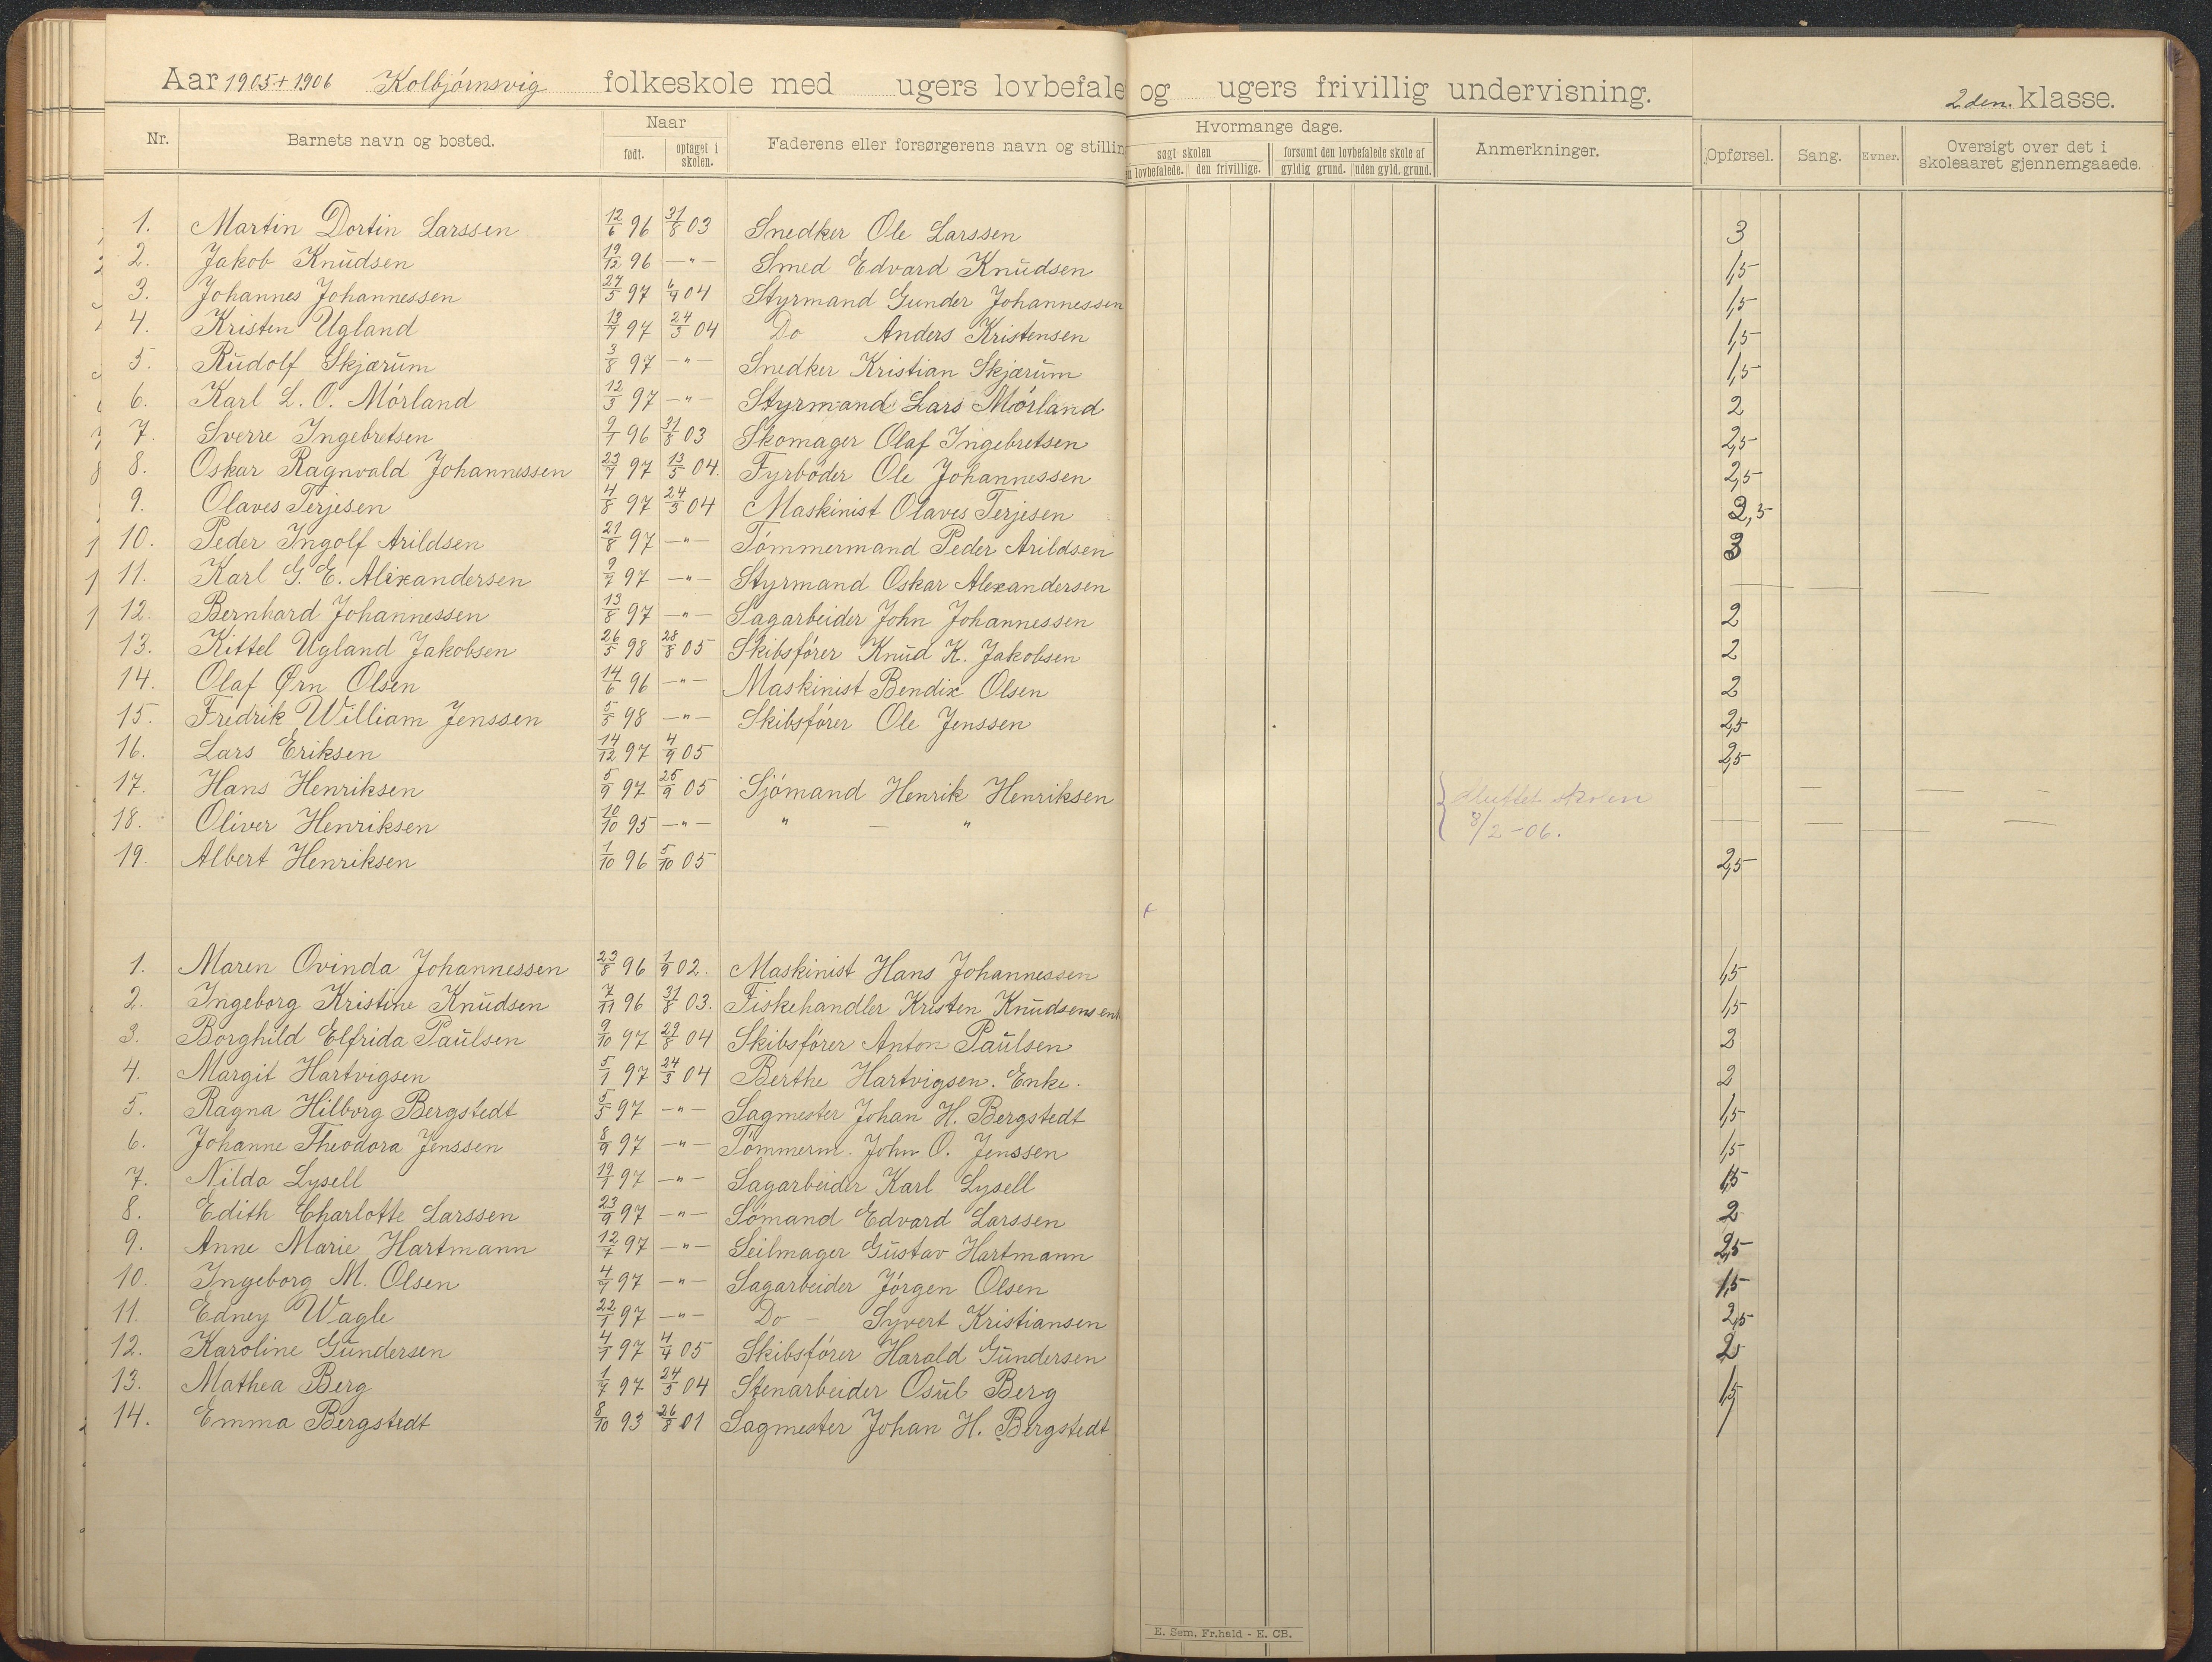 Aar 1905 + 1906 Kolbjörnsvig folkeskole med ugers lovbefale og ugers frivillig undervisning. 2den. klasse.
Nr. Barnets navn og bosted. Naar født. optaget i skolen. Faderens eller forsørgerens navn og stillin Hvormange dage. søgt skolen n lovbefalede. den frivillige. forsømt den lovbefalede skole af gyldig grund. uden gyld. grund. Anmerkninger. Opførsel. Sang. Evner. Oversigt over det i skoleaaret gjennemgaaede.
1. Martin Dortin Larssen 12/6 96 31/8 03 Snedker Ole Larssen 3
2. Jakob Knudsen 19/12 96 —"— Smed Edvard Knudsen 1,5
3. Johannes Johannessen 27/5 97 6/9 04 Styrmand Gunder Johannessen 1,5
4. Kristen Ugland 97 24/5 04 Do Anders Kristensen 1,5
5. Rudolf Skjærum 3/8 97 —"— Snedker Kristian Skjærum 1,5
6. Karl L. O. Mörland 12/3 97 —"— Styrmand Lars Mörland 2
7. Sverre Ingebretsen 9/1 96 31/8 03 Skomager Olaf Ingebretsen 2,5
8. Oskar Ragnvald Johannessen 97 13/5 04. Fyrböder Ole Johannessen 2,5
9. Olaves Terjesen 4/8 97 24/5 04 Maskinist Olaves Terjesen 2,5
10. Peder Ingolf Arildsen 21/8 97 —"— Tömmermand Peder Arildsen 3
11. Karl G. E. Alexandersen 9/7 97 —"— Styrmand Oskar Alexandersen — — —
12. Bernhard Johannessen 13/8 97 —"— Sagarbeider John Johannessen 2
13. Kittel Ugland Jakobsen 26/5 98 28/8 05 Skibsförer Knud K. Jakobsen 2
14. Olaf Ørn Olsen 14/6 96 —"— Maskinist Bendix Olsen 2
15. Fredrik William Jenssen 5/8 98 —"— Skibsförer Ole Jenssen 2,5
16. Lars Eriksen 14/12 97 4/9 05 2,5
17. Hans Henriksen 5/9 97 25/9 05 Sjömand Henrik Henriksen { sluttet skolen — — —
18. Oliver Henriksen 10/10 95 —"— " — " 8/2-06. — — — —
19. Albert Henriksen 1/10 96 5/10 05 2,5
1. Maren Ovinda Johannessen 23/8 96 1/9 02. Maskinist Hans Johannessen 1,5
2. Ingeborg Kristine Knudsen 7/11 96 31/8 03. Fiskehandler Kristen Knudsens enk 1,5
3. Borghild Elfrida Paulsen 9/10 97 29/8 04 Skibsförer Anton Paulsen 2
4. Margit Hartvigsen 5/1 97 24/5 04 Berthe Hartvigsen. Enke. 2
5. Ragna Hilborg Bergstedt 5/5 97 —"— Sagmester Johan H. Bergstedt 1,5
6. Johanne Theodora Jenssen 8/9 97 —"— Tömmerm. John O. Jenssen 1,5
7. Nilda Lysell 97 —"— Sagarbeider Karl Lysell 1,5
8. Edith Charlotte Larssen 23/9 97 —"— Sömand Edvard Larssen 2
9. Anne Marie Hartmann 12/7 97 —"— Seilmager Gustav Hartmann 2,5
10. Ingeborg M. Olsen 97 —"— Sagarbeider Jörgen Olsen 1,5
11. Edney Wagle 22/1 97 —"— Do — Syvert Kristiansen 2,5
12. Karoline Gundersen 97 4/4 05 Skibsförer Harald Gundersen 2
13. Mathea Berg 1/7 97 24/5 04 Stenarbeider Osul Berg 1,5
14. Emma Bergstedt 8/10 93 26/8 01 Sagmester Johan H. Bergstedt
E. Sem. Fr.hald - E. CB.